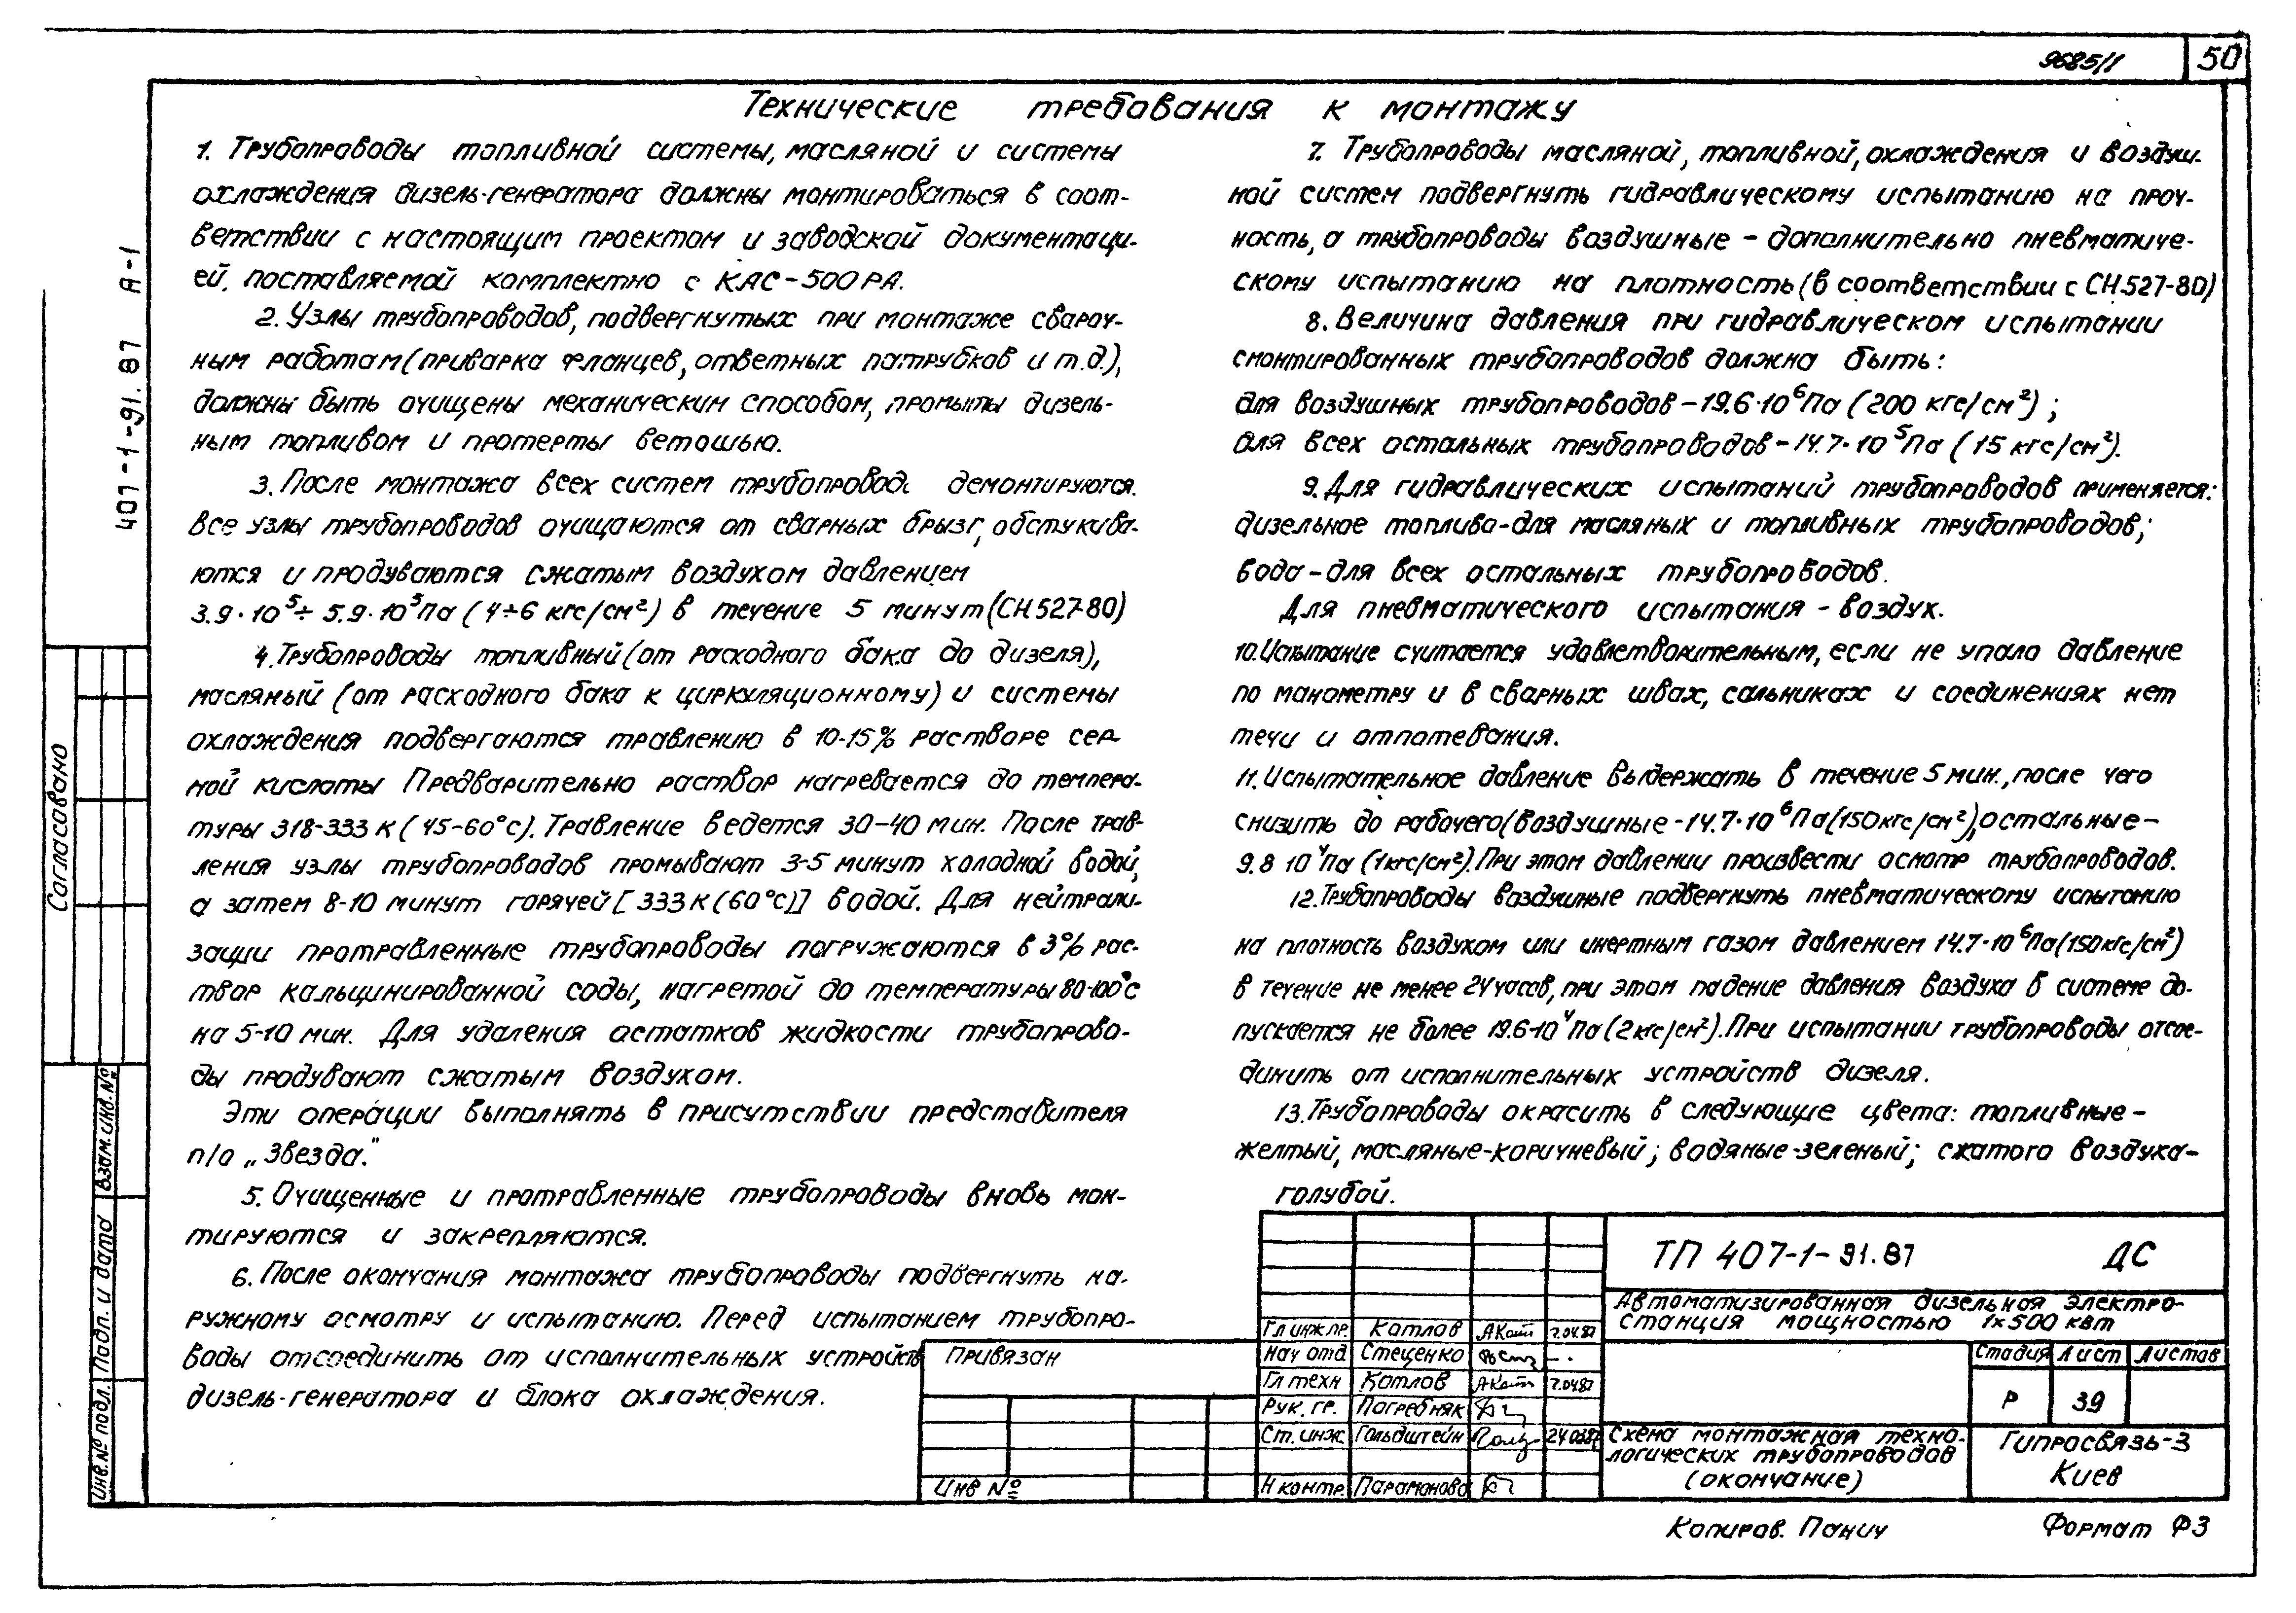 9685/1
50
Технические требования к монтажу
1. Трубопроводы топливной системы, масляной и системы
охлаждения дизель-генератора должны монтироваться в соот-
ветствии с настоящим проектом и заводской документаци-
ей, поставляемой комплектно с КАС-500РА.
2. Узлы трубопроводов, подвергнутых при монтаже свароч-
ным работам (приварка фланцев, ответных патрубков и т.д.),
должны быть очищены механическим способом, промыты дизель-
ным топливом и протерты ветошью.
3. После монтажа всех систем трубопроводы демонтируются.
Все узлы трубопроводов очищаются от сварных брызг, обстукива-
ются и продуваются сжатым воздухом давлением
3.9·10⁵÷5.9·10⁵Па (4÷6 кгс/см²) в течение 5 минут (СН 527-80)
4. Трубопроводы топливный (от расходного бака до дизеля),
масляный (от расходного бака к циркуляционному) и системы
охлаждения подвергаются травлению в 10-15% растворе сер-
ной кислоты Предварительно раствор нагревается до темпера-
туры 318-333 К (45-60°С). Травление ведется 30-40 мин. После трав-
ления узлы трубопроводов промывают 3-5 минут холодной водой,
а затем 8-10 минут горячей [333 К (60°С)] водой. Для нейтрали-
зации протравленные трубопроводы погружаются в 3% рас-
твор кальцинированной соды, нагретой до температуры 80-100°С
на 5-10 мин. Для удаления остатков жидкости трубопрово-
ды продувают сжатым воздухом.
Эти операции выполнять в присутствии представителя
п/о „Звезда."
5. Очищенные и протравленные трубопроводы вновь мон-
тируются и закрепляются.
6. После окончания монтажа трубопроводы подвергнуть на-
ружному осмотру и испытанию. Перед испытанием трубопро-
воды отсоединить от исполнительных устройств
дизель-генератора и блока охлаждения.
7. Трубопроводы масляной, топливной, охлаждения и воздуш-
ной систем подвергнуть гидравлическому испытанию на проч-
ность, а трубопроводы воздушные - дополнительно пневматиче-
скому испытанию на плотность (в соответствии с СН 527-80)
8. Величина давления при гидравлическом испытании
смонтированных трубопроводов должна быть:
для воздушных трубопроводов - 19.6·10⁶Па (200 кгс/см²);
для всех остальных трубопроводов - 14.7·10⁵Па (15 кгс/см²).
9. Для гидравлических испытаний трубопроводов применяется:
дизельное топливо - для масляных и топливных трубопроводов;
вода - для всех остальных трубопроводов.
Для пневматического испытания - воздух.
10. Испытание считается удовлетворительным, если не упало давление
по манометру и в сварных швах, сальниках и соединениях нет
течи и отпотевания.
11. Испытательное давление выдержать в течение 5 мин., после чего
снизить до рабочего (воздушные - 14.7·10⁶Па (150 кгс/см²), остальные -
9.8 10⁴Па (1 кгс/см²). При этом давлении произвести осмотр трубопроводов.
12. Трубопроводы воздушные подвергнуть пневматическому испытанию
на плотность воздухом или инертным газом давлением 14.7·10⁶Па (150 кгс/см²)
в течение не менее 24 часов, при этом падение давления воздуха в системе до-
пускается не более 19.6·10⁴Па (2 кгс/см²). При испытании трубопроводы отсое-
динить от исполнительных устройств дизеля.
13. Трубопроводы окрасить в следующие цвета: топливные -
желтый, масляные - коричневый; водяные - зеленый; сжатого воздуха -
голубой.
407-1-91.87 А-1
Согласовано
Взам. инв. №
Подп. и дата
Инв. № подл.
Привязан
Инв №
Гл инж пр. Котлов 7.04.87
Нач отд Стеценко
Гл техн Котлов 7.04.87
Рук. гр. Погребняк
Ст. инж Гольдштейн 24.03.87
Н контр. Парамонова
ТП 407-1-91.87 ДС
Автоматизированная дизельная электро-
станция мощностью 1×500 квт
Стадия Лист Листов
Р 39
Схема монтажная техно-
логических трубопроводов
(окончание)
Гипросвязь-3
Киев
Копиров. Панич
Формат Ф3